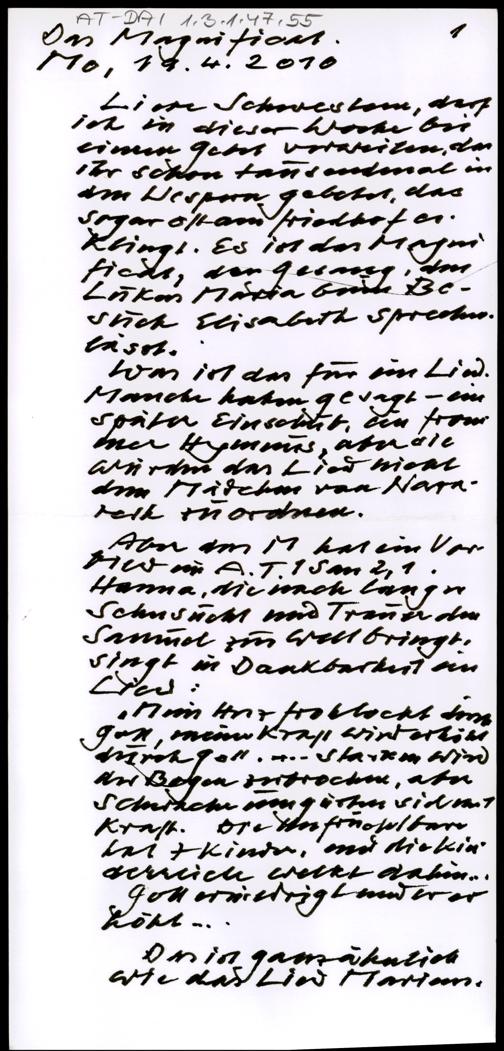 AT-DAI 1.3.1.47.55
1
Das Magnificat.
Mo, 19.4.2010
Liebe Schwestern, darf
ich in dieser Woche bei
einem Gebet verweilen, das
ihr schon tausendmal in
der Vesper gebetet, das
sogar oft am Friedhof er-
klingt. Es ist das Magni
ficat, der Gesang, den
Lukas Maria beim Be-
such Elisabeth sprechen
lässt.
Was ist das für ein Lied.
Manche haben gesagt - ein
später Einschub, ein from
mer Hymnus, aber die
würden das Lied nicht
dem Mädchen von Naza-
reth zuordnen.
Aber das M hat ein Vor
bild im A.T. 1 Sam 2,1.
Hanna, die nach langer
Sehnsucht und Trauer den
Samuel zur Welt bringt,
singt in Dankbarkeit ein
Lied:
"Mein Herz frohlockt durch
Gott, meine Kraft wird erhöht
durch Gott. ... Starken wird
der Bogen zerbrochen, aber
Schwache umgürten sich mit
Kraft. Die Unfruchtbare
hat 7 Kinder, und die kin
derreiche welkt dahin...
Gott erniedrigt und er er
höht...
Das ist ganz ähnlich
wie das Lied Mariens.